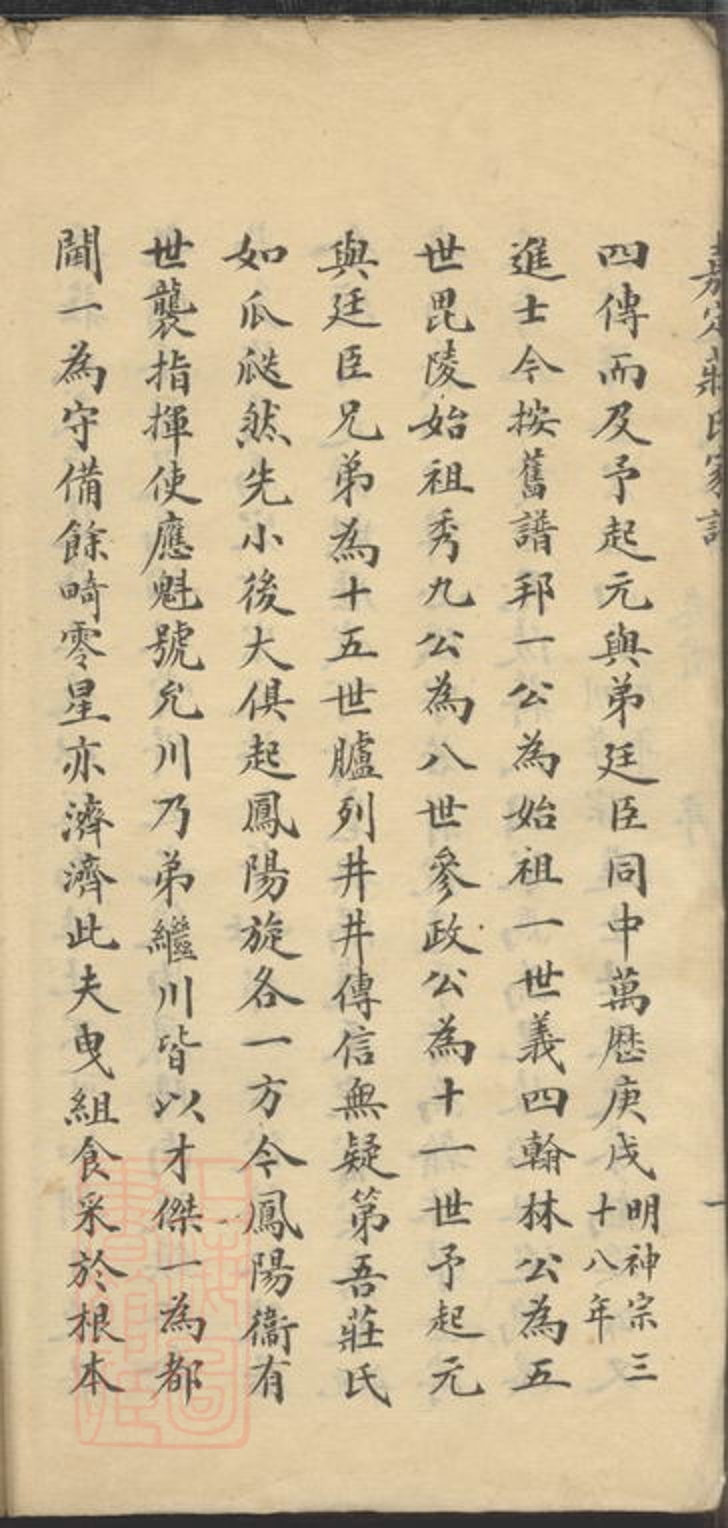 嘉定莊氏家譜
四傳而及予起元與弟廷臣同中萬歷庚戌明神宗三十八年
進士今按舊譜邦一公為始祖一世義四翰林公為五
世毘陵始祖秀九公為八世參政公為十一世予起元
與廷臣兄弟為十五世臚列井井傳信無疑第吾莊氏
如瓜瓞然先小後大俱起鳳陽旋各一方今鳳陽衞有
世襲指揮使應魁號允川乃弟繼川皆以才傑一為都
閫一為守備餘畸零星亦濟濟此夫曳組食采於根本